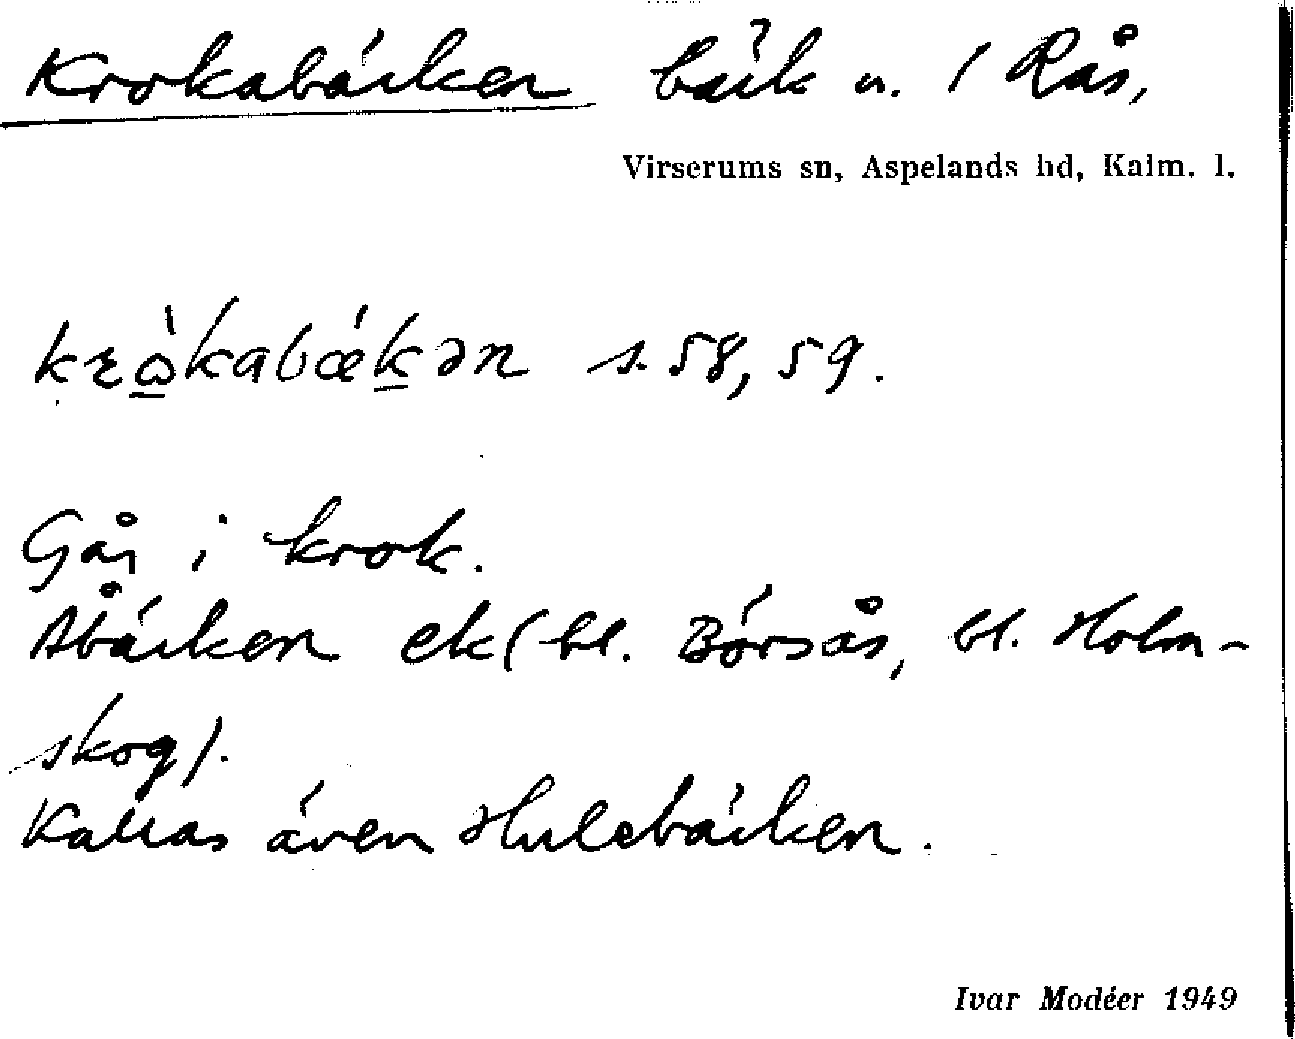 Krokabäcken bäck n. / Rås,
Virserums sn, Aspelands hd, Kalm. l.
krὼ̲kabǽk̲ən s. 58, 59.
Går i krok.
Åbäcken ek (bl. Börsås, bl. Holm-
skog).
Kallas även Hulebäcken.
Ivar Modéer 1949